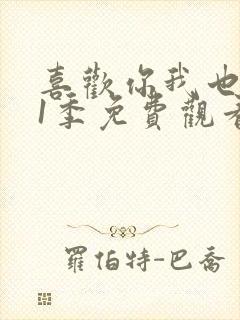 喜歡你我也
1季免費觀看
羅伯特-巴喬